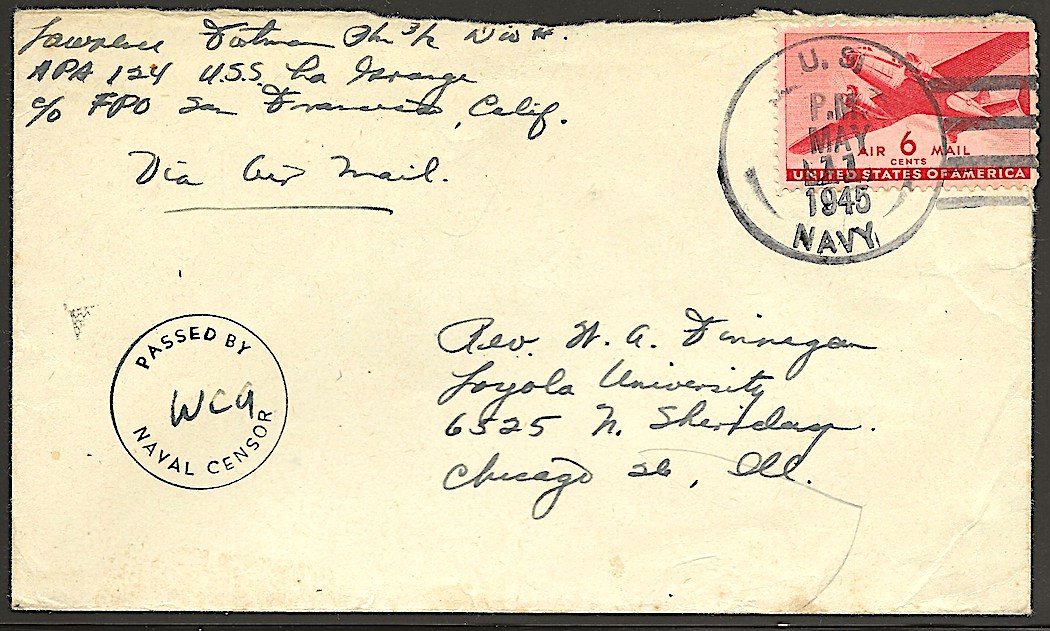 Lawrence
APA 124 U.S.S. La Grange
c/o FPO San Francisco, Calif.
Via Air Mail.
U.S.
P.M.
MAY
11
1945
NAVY
AIR 6 MAIL
CENTS
UNITED STATES OF AMERICA
PASSED BY
NAVAL CENSOR
Rev. W. A. Finnegan
Loyola University
6525 N. Sheridan.
Chicago 26, Ill.